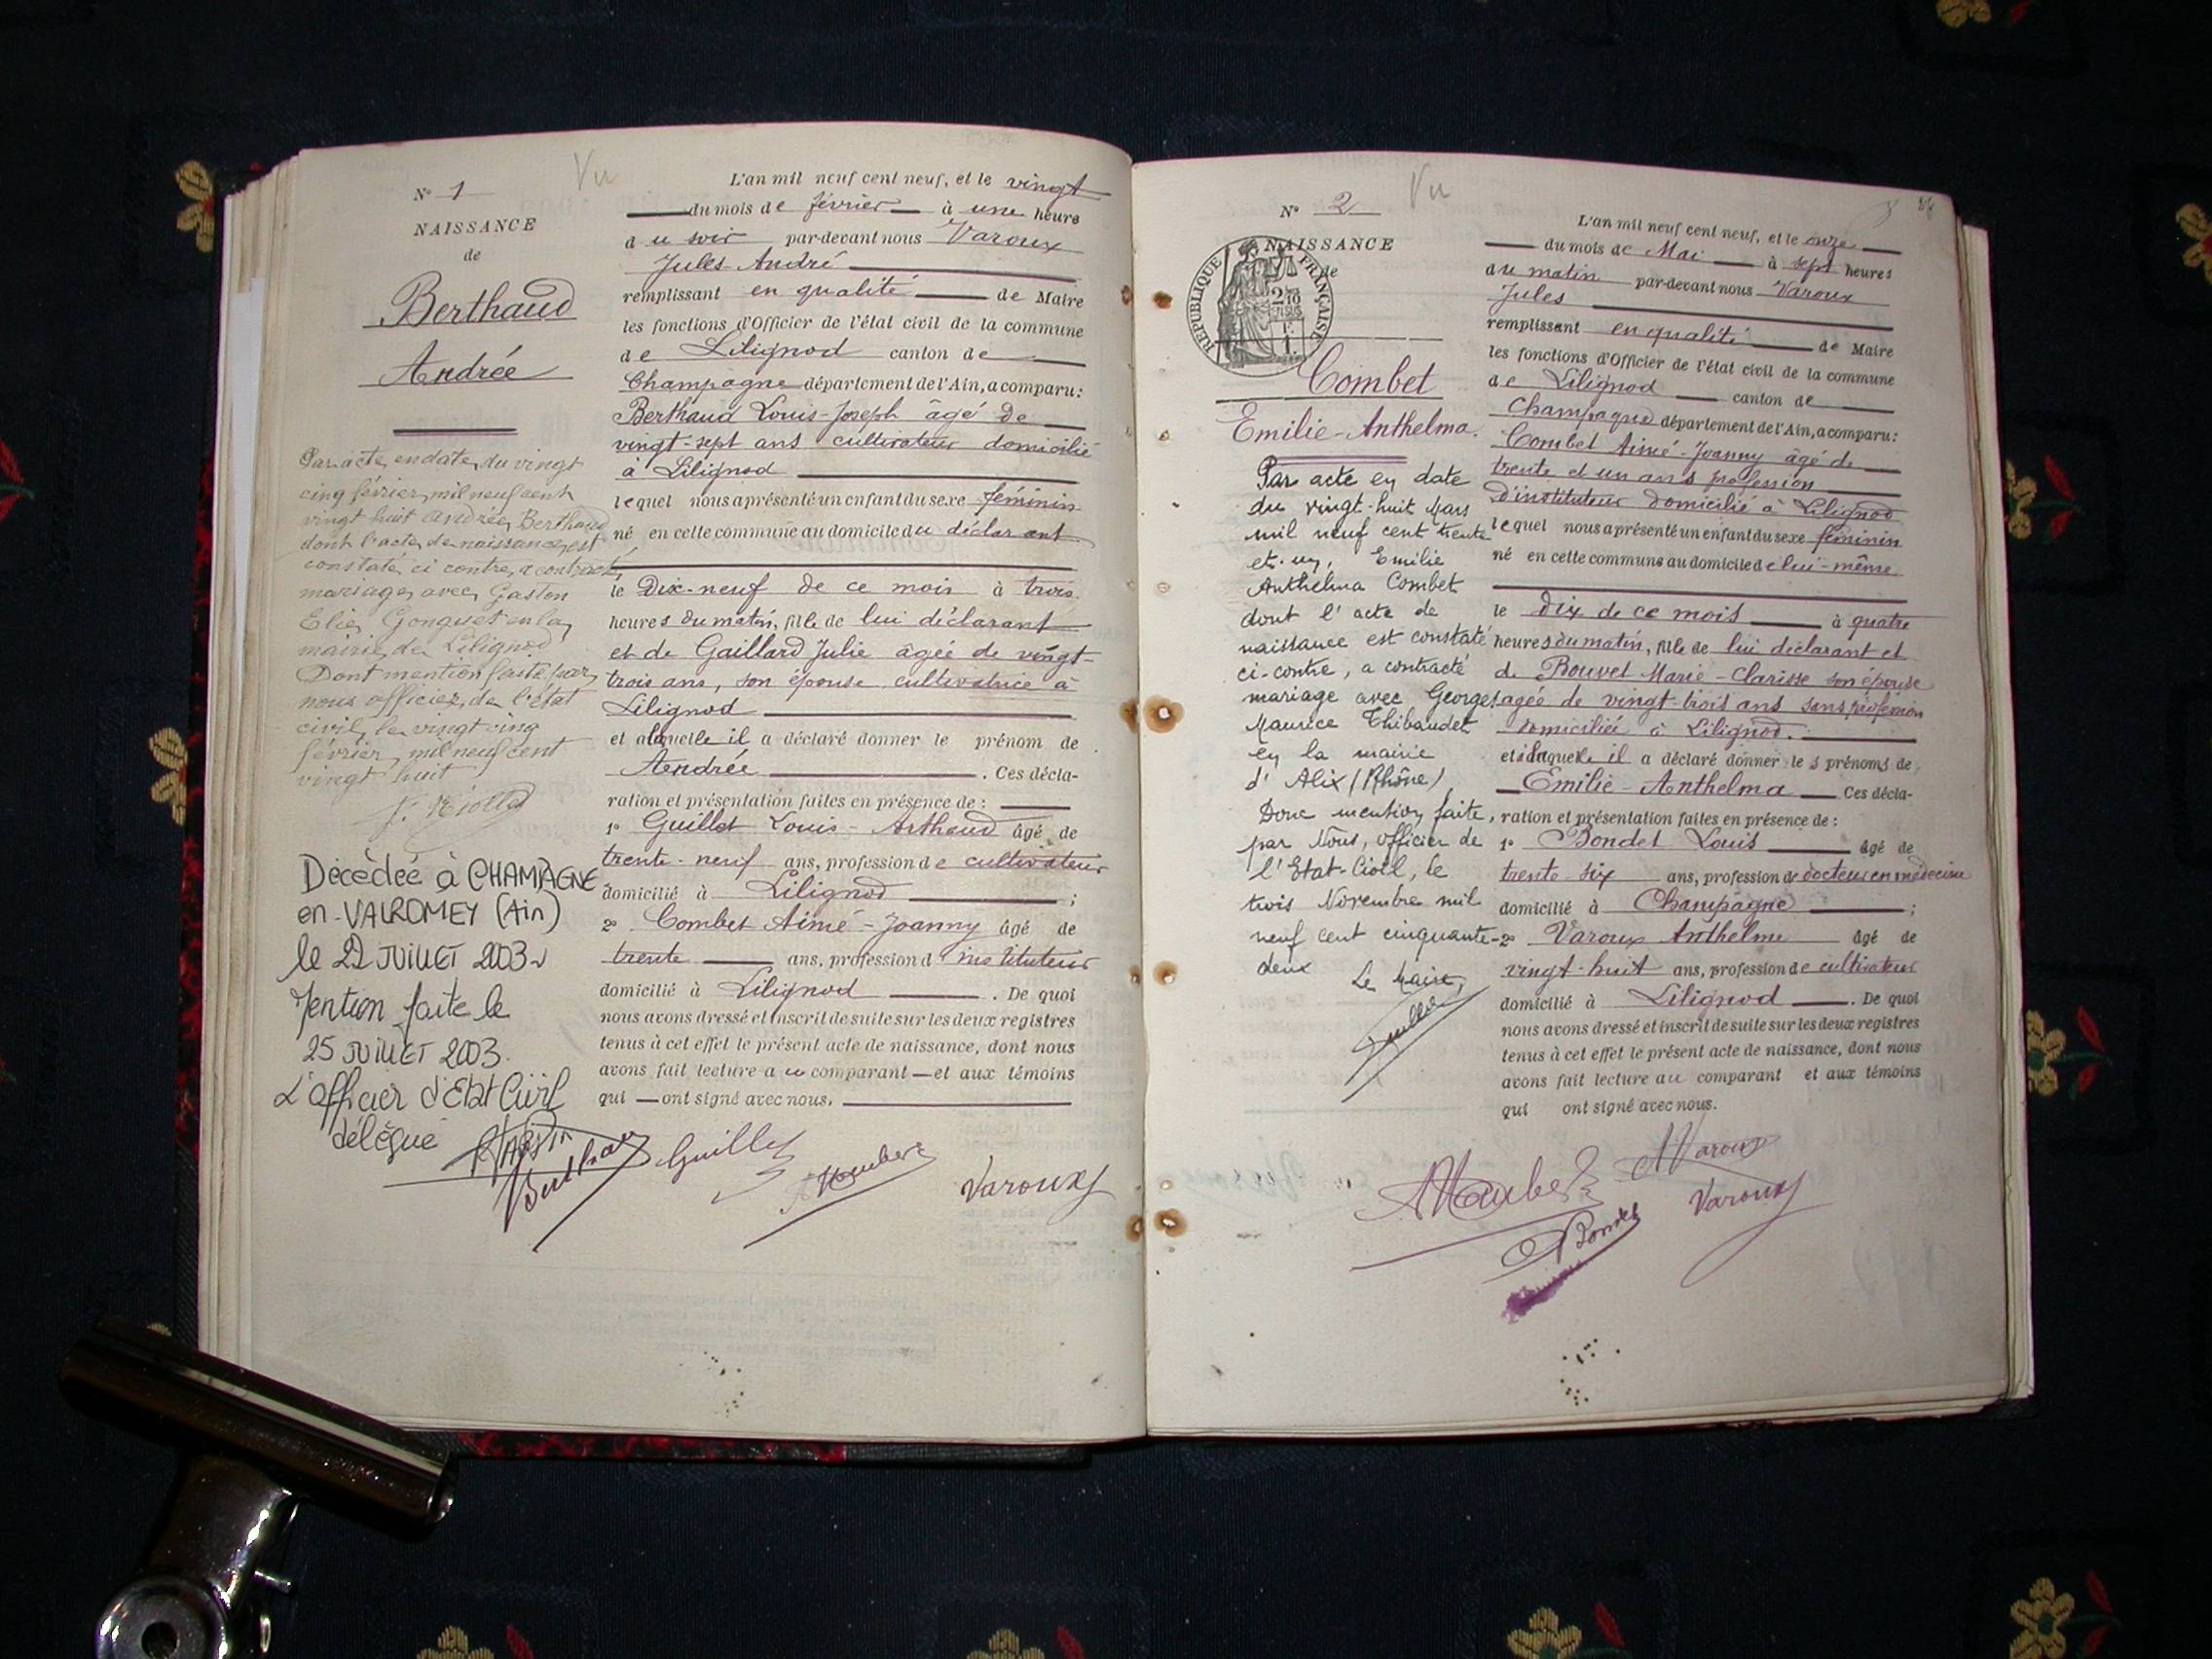 Vu
N° 1
NAISSANCE
de
Berthaud
Andrée
Par acte en date du vingt
cinq février mil neuf cent
vingt huit Andrée Berthaud
dont l'acte de naissance est
constaté ci contre, a contracté
mariage avec Gaston
Elie Gonguet en la
mairie de Lilignod
Dont mention faite par
nous officier de l'état
civil le vingt cinq
février mil neuf cent
vingt huit
Décédée à CHAMPAGNE
en-VALROMEY (Ain)
le 22 JUILLET 2003
Mention faite le
25 JUILLET 2003.
L'officier d'Etat Civil
délégué
L'an mil neuf cent neuf, et le vingt
du mois de février à une heure
du soir par-devant nous Varoux
Jules André
remplissant en qualité de Maire
les fonctions d'Officier de l'état civil de la commune
de Lilignod canton de
Champagne département de l'Ain, a comparu:
Berthaud Louis-Joseph âgé de
vingt-sept ans cultivateur domicilié
à Lilignod
lequel nous a présenté un enfant du sexe féminin
né en cette commune au domicile du déclarant
le Dix-neuf de ce mois à trois
heures du matin, fille de lui déclarant
et de Gaillard Julie agée de vingt-
trois ans, son épouse cultivatrice à
Lilignod
et a laquelle il a déclaré donner le prénom de
Andrée . Ces décla-
ration et présentation faites en présence de :
1° Guillet Louis-Arthaud âgé de
trente-neuf ans, profession de cultivateur
domicilié à Lilignod ;
2° Combet Aimé-Joanny âgé de
trente ans, profession d'instituteur
domicilié à Lilignod . De quoi
nous avons dressé et inscrit de suite sur les deux registres
tenus à cet effet le présent acte de naissance, dont nous
avons fait lecture au comparant et aux témoins
qui ont signé avec nous.
Berthaud Guillet Varoux
Vu
N° 2
NAISSANCE
de
REPUBLIQUE FRANÇAISE
Combet
Emilie-Anthelma.
Par acte en date
du vingt-huit Mars
mil neuf cent trente
et-un, Emilie
Anthelma Combet
dont l'acte de
naissance est constaté
ci-contre, a contracté
mariage avec Georges
Maurice Thibaudet
en la mairie
d'Alix (Rhône)
Donc mention faite,
par Nous, officier de
l'Etat-Civil, le
trois Novembre mil
neuf cent cinquante-
deux
Le Maire,
L'an mil neuf cent neuf, et le onze
du mois de Mai à sept heures
du matin par-devant nous Varoux
Jules
remplissant en qualité de Maire
les fonctions d'Officier de l'état civil de la commune
de Lilignod canton de
Champagne département de l'Ain, a comparu:
Combet Aimé-Joanny âgé de
trente et un ans profession
d'instituteur domicilié à Lilignod
lequel nous a présenté un enfant du sexe féminin
né en cette commune au domicile de lui-même
le dix de ce mois à quatre
heures du matin, fille de lui déclarant et
de Bouvet Marie-Clarisse son épouse
agée de vingt-trois ans sans profession
domiciliée à Lilignod.
et à laquelle il a déclaré donner les prénoms de
Emilie-Anthelma Ces décla-
ration et présentation faites en présence de :
1° Bondet Louis âgé de
trente six ans, profession de docteur en médecine
domicilié à Champagne ;
2° Varoux Anthelme âgé de
vingt-huit ans, profession de cultivateur
domicilié à Lilignod . De quoi
nous avons dressé et inscrit de suite sur les deux registres
tenus à cet effet le présent acte de naissance, dont nous
avons fait lecture au comparant et aux témoins
qui ont signé avec nous.
AVaroux
Varoux